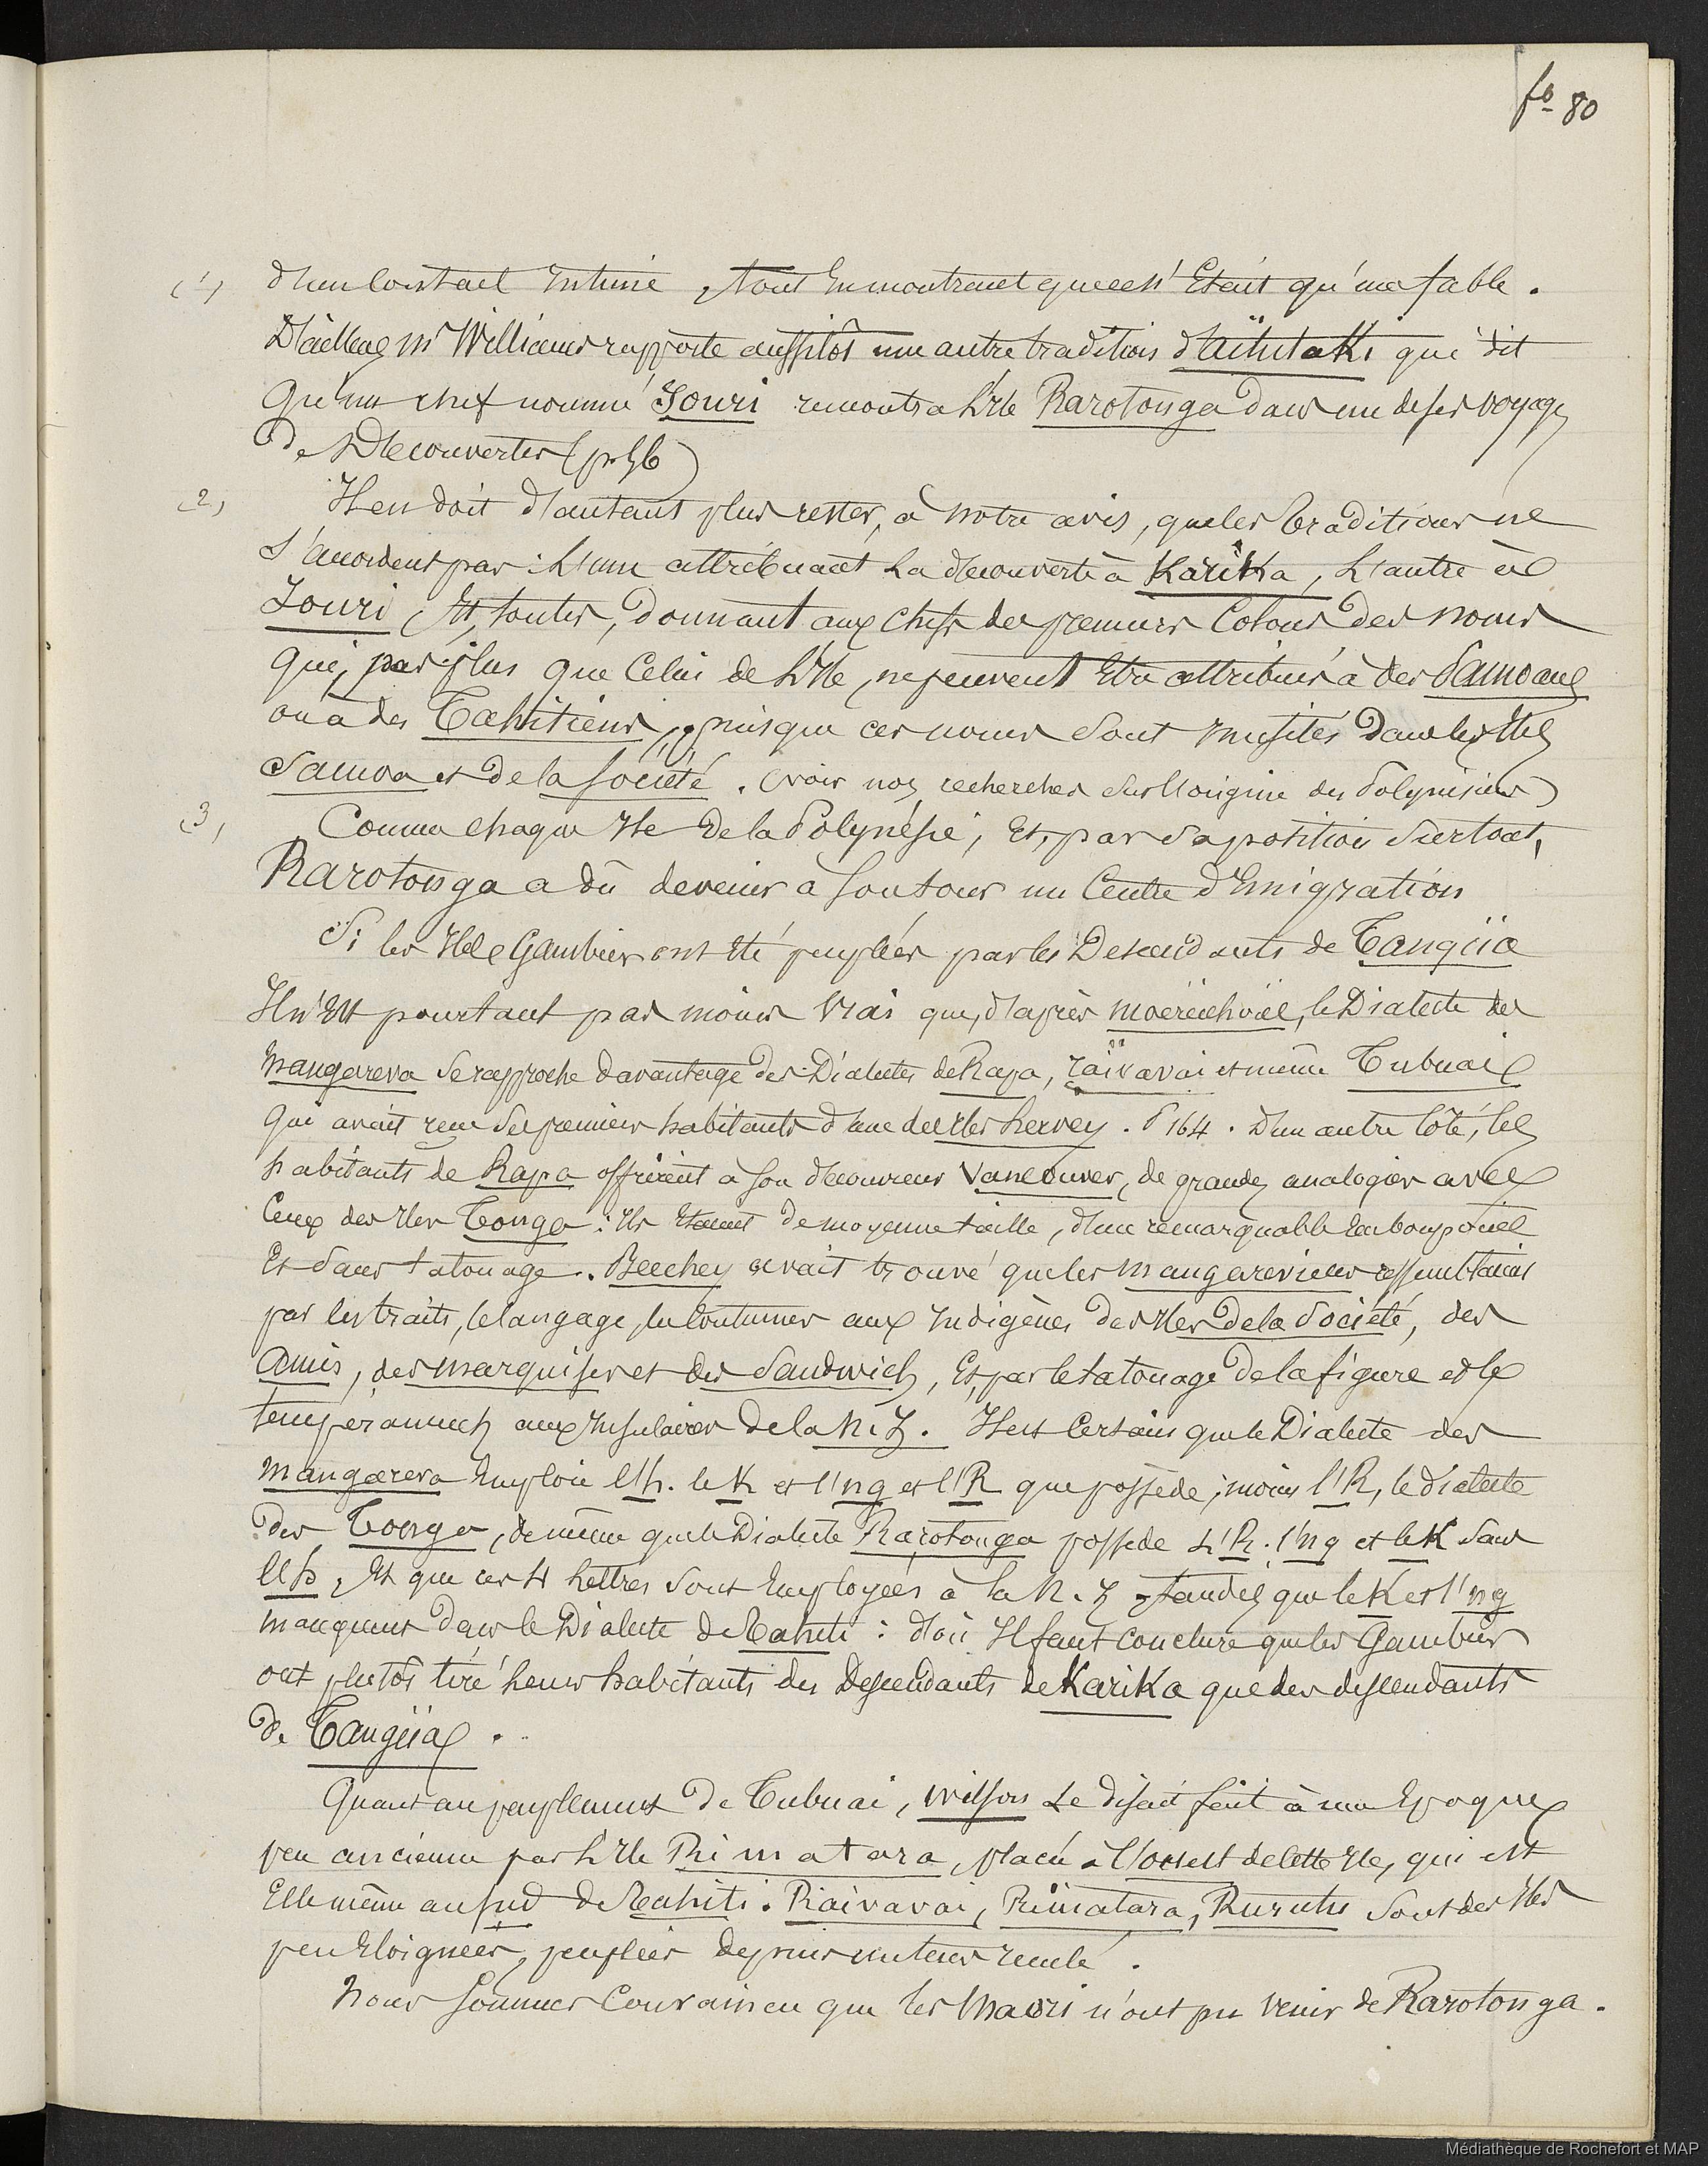 fo 80
(1) d'un contact intime, tout en montrant que ce n'Etait qu'une fable.
D'ailleurs Mr Williams rapporte aussitôt une autre tradition d'Aïtutaki qui dit
Qu'un chef nommé Iouri rencontra L'Ile Rarotonga dans un de ses voyages
de Découvertes (p. 56)
(2) Il en doit d'autant plus rester, à notre avis, que les traditions ne
s'accordent pas : L'une attribuant La découverte à Karika, L'autre à
Iouri, Et, toutes, donnant aux chefs des premiers Colons des noms
Qui, pas plus que Celui de L'Ile, ne peuvent Etre attribués à des Samoans
ou à des Tahitiens, puisque ces noms sont inusités dans les Iles
Samoa et de la société. (voir nos recherches sur l'origine des Polynésiens)
(3) Comme chaque Ile de la Polynésie, Et, par sa position surtout,
Rarotonga a dû devenir à son tour un Centre d'Emigration
Si les Iles Gambier ont été peuplées par les Descendants de Tangiia
Il n'Est pourtant pas moins Vrai que, d'après Moerenhoüt, le Dialecte des
Mangareva se rapproche davantage des Dialectes de Rapa, raïvavai et même Tubuai
Qui avait reçu ses premiers habitants d'une des Iles hervey. P 164. D'un autre Côté, les
habitants de Rapa offrirent à son découvreur Vancouver, de grandes analogies avec
Ceux des Iles Tonga : Ils Etaient de moyenne taille, d'un remarquable Embonpoint
Et sans tatouage. Beechey avait trouvé que les mangareviens ressemblaient
par les traits, le langage, les Coutumes aux Indigènes des Iles de la Société, des
Amis, des marquises et des Sandwich, Et, par le tatouage de la figure et le
tempérament aux Insulaires de la N. Z. Il est Certain que le Dialecte des
Mangareva Emploie l'h. le K et l'ng et l'R que possède, moins l'R, le dialecte
des Tonga, de même que le Dialecte Rarotonga possede L'R. l'ng et le K sans
l'h, Et que ces 4 Lettres sont Employées à la N. Z tandis que le K et l'ng
manquent dans le Dialecte de Tahiti : d'où Il faut conclure que les Gambier
ont plutôt tiré Leurs habitants des Descendants de Karika que des descendants
de Tangiia.
Quant au peuplement de Tubuai, Wilson Le disait fait à une Epoque
peu ancienne par L'Ile Rimatara, placée à l'ouest de cette Ile, qui est
Elle même au sud de Tahiti. Raivavai, Rimatara, Rurutu sont des Iles
peu Eloignées, peuplées depuis un temps reculé.
Nous Sommes Convaincu que les Maori n'ont pu venir de Rarotonga.
Médiathèque de Rochefort et MAP